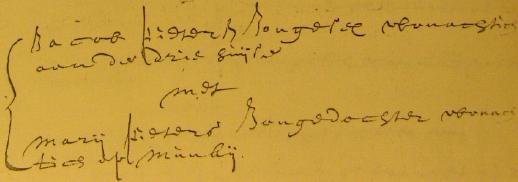 Jacob Pieters Jongesel wonachtich
aan de drie huijse
met
marij Pieters Jongedochter wonach
tich op Munkij.